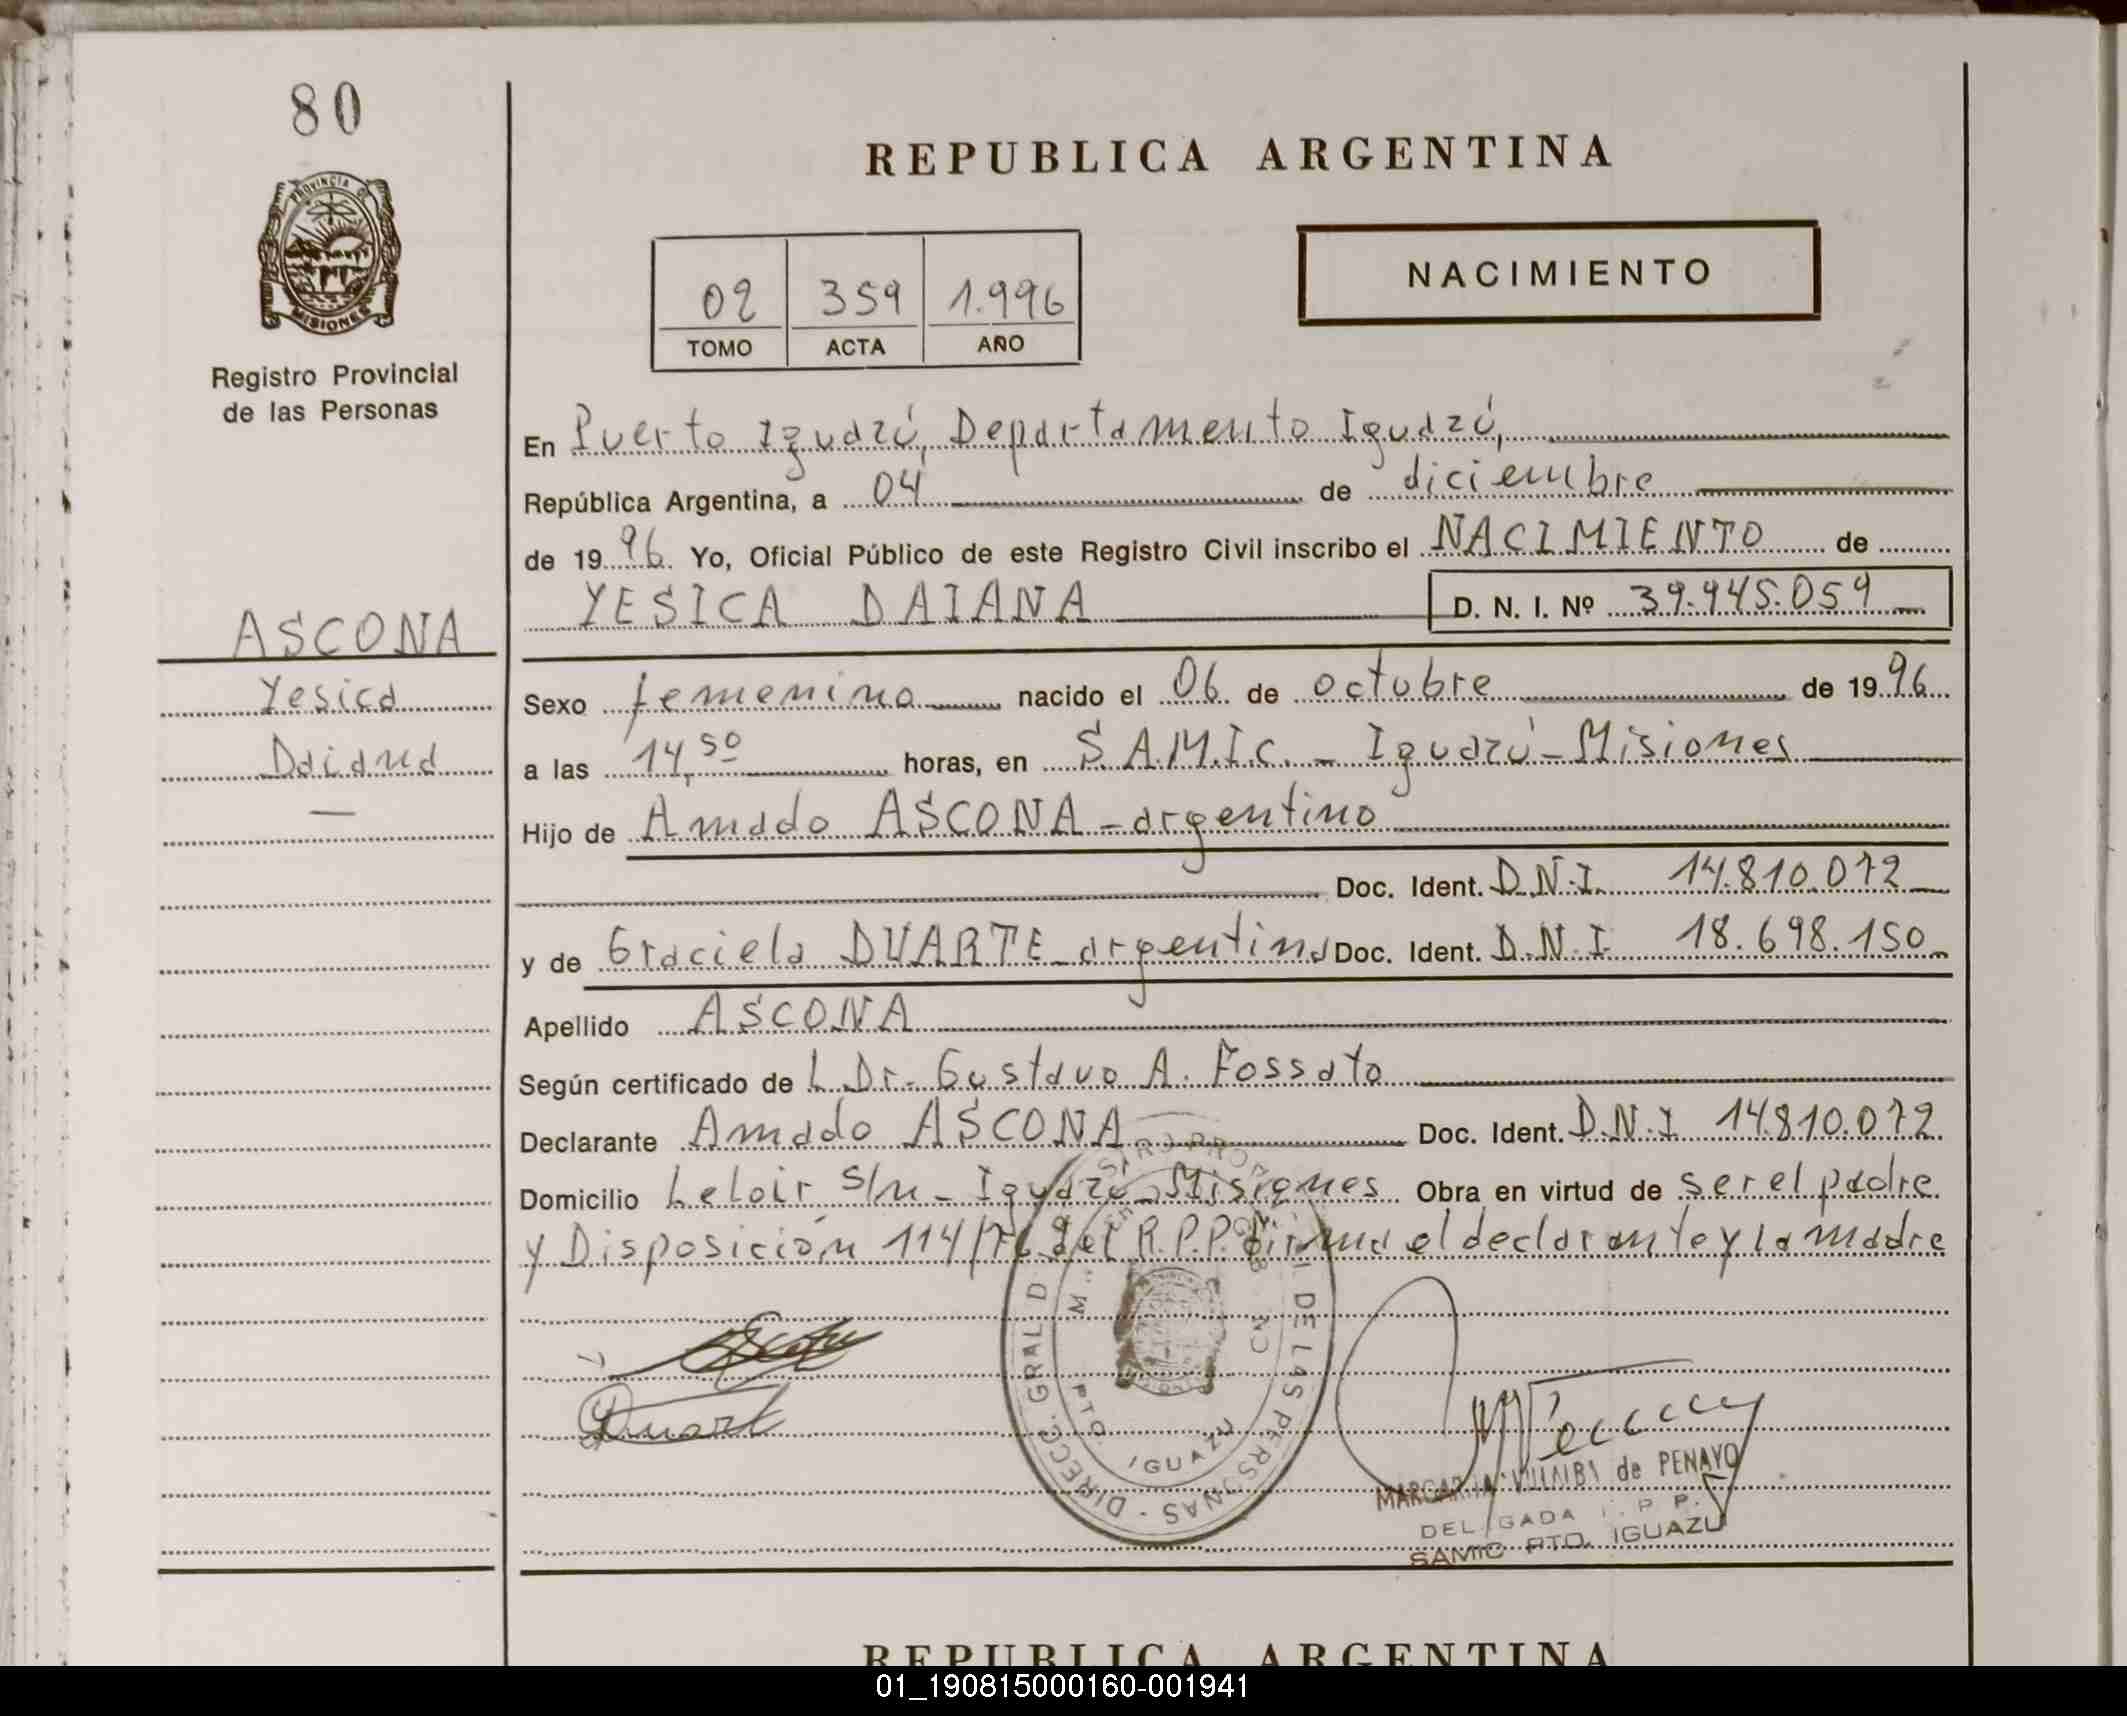 80
PROVINCIA DE
MISIONES
Registro Provincial
de las Personas
REPUBLICA ARGENTINA
02 359 1.996
TOMO ACTA AÑO
NACIMIENTO
En Puerto Iguazú, Departamento Iguazú,
República Argentina, a 04 de diciembre
de 19 96. Yo, Oficial Público de este Registro Civil inscribo el NACIMIENTO de
YESICA DAIANA D. N. I. Nº 39.945.059
ASCONA
Yesica
Daiana
Sexo femenino nacido el 06 de octubre de 19 96
a las 14,50 horas, en S.A.M.I.C. - Iguazú - Misiones
Hijo de Amado ASCONA - argentino
Doc. Ident. D.N.I. 14.810.072
y de Graciela DUARTE - argentina Doc. Ident. D.N.I. 18.698.150
Apellido ASCONA
Según certificado de L Dr. Gustavo A. Fossato
Declarante Amado ASCONA Doc. Ident. D.N.I 14.810.072
Domicilio Leloir s/n - Iguazú - Misiones Obra en virtud de ser el padre
y Disposición 114/76 del R.P.P. firma el declarante y la madre
Duart
DIRECC. GRAL D DE LAS PERSONAS
PTO. IGUAZU
MARGARITA VILLALBA de PENAYO
DELEGADA P. P.
SAMIC PTO. IGUAZU
REPUBLICA ARGENTINA
01_190815000160-001941